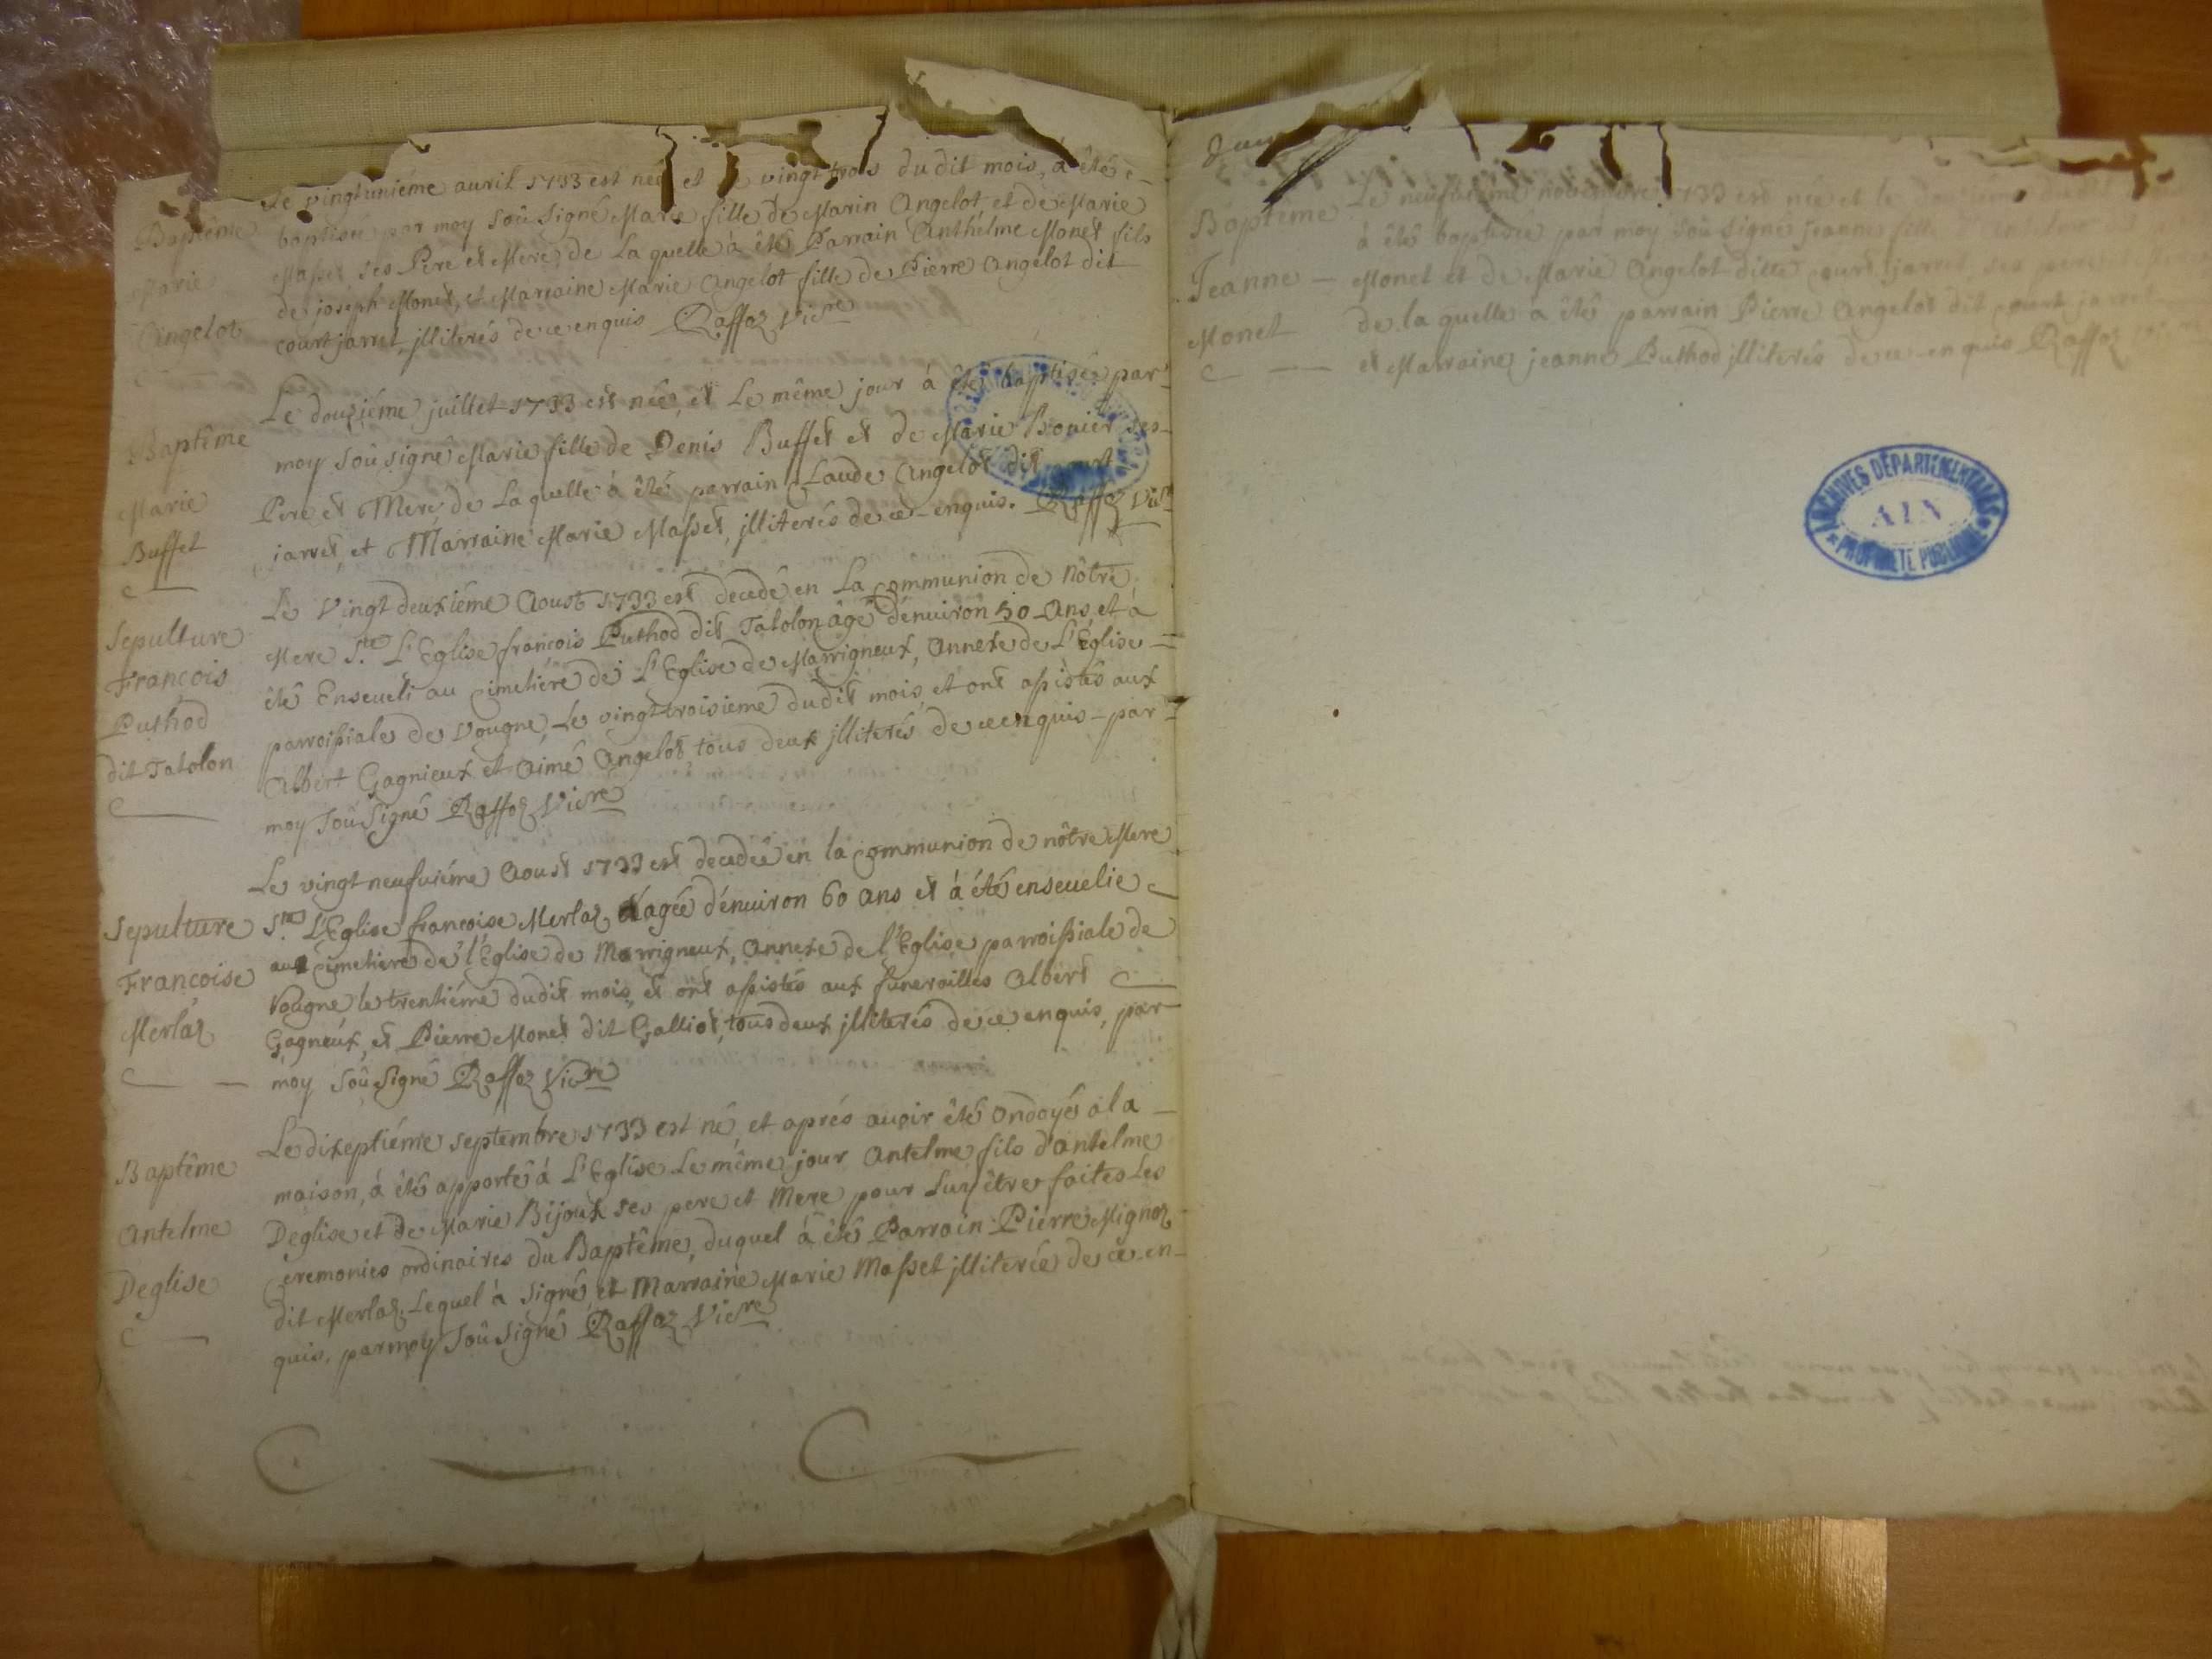 Baptême
Marie
Angelot
Le vingtuniéme auril 1733 est née et le vingt trois du dit mois, a êté
baptisée par moy soûsigné Marie fille de Marin Angelot et de Marie
Masset ses Pere et Mere, de La quelle à êté Parrain Anthélme Monet fils
de joseph Monet, et Marraine Marie Angelot fille de Pierre Angelot dit
court jarret, jlliterés de ce enquis Raffoz Vicre
Baptême
Marie
Buffet
Le douziéme juillet 1733 est née, et Le même jour à êté baptisée par
moy soûsigné Marie fille de Denis Buffet et de Marie Bonier ses
Pere et Mere de Laquelle à êté parrain Claude Angelot dit court
jarret, et Marraine Marie Masset, jlliterés de ce enquis. Raffoz Vic
Sepulture
François
Puthod
dit Tatolon
Le Vingt deuxiéme Aoust 1733 est decedé en La Communion de Nôtre
Mere Ste L'Eglise françois Puthod dit Tatolon âgé d'énuiron 50 Ans, et à
êté Enseueli au Cimetiere de L'Eglise de Marrigneux, Annexe de L'Eglise
parroissiale de Vougne, Le vingt troisieme dudit mois, et ont assistés aux
Albert Gagnieux et Aimé Angelot tous deux jlliterés de ce enquis par
moy soûsigné Raffoz Vicre
Sepulture
Françoise
Merlaz
Le vingt neufuiéme Aoust 1733 est decedée en la Communion de nôtre Mere
Ste L'Eglise françoise Merlaz âgée d'énuiron 60 ans et à été enseuelie
au Cimetiere de l'Eglise de Marrigneux, Annexe de l'Eglise parroissiale de
Vougne le trentiéme dudit mois, et ont assistés aux funerailles Albert
Gagneux, et Pierre Monet dit Galliot, tous deux jlliterés de ce enquis, par
moy soûsigné Raffoz Vicre
Baptême
Antelme
Deglise
Le dixeptiéme septembre 1733 est né, et aprés auoir êté ondoyé a la
maison, à êté apporté à L'Eglise Le même jour Antelme fils d'antelme
Deglise et de Marie Bijoux ses pere et Mere pour Luy être faites Les
Ceremonies ordinaires du Baptême, duquel à êté Parrain Pierre Mignoz
dit Merlaz, Lequel à signé, et Marraine Marie Masset jlliterée de ce en-
quis, par moy soûsigné Raffoz Vicre
Baptême
Jeanne
Monet
Le neufuiéme nouembre 1733 est née et le douziéme dudit
à êté baptisée par moy soûsigné jeanne fille d'antelme
Monet et de Marie Angelot ditte Court jarret, ses pere et Mere
de la quelle a êté parrain Pierre Angelot dit Court jarret
et Marraine jeanne Puthod jlliterés de ce enquis Raffoz
ARCHIVES DÉPARTEMENTALES
AIN
PROPRIÉTÉ PUBLIQUE